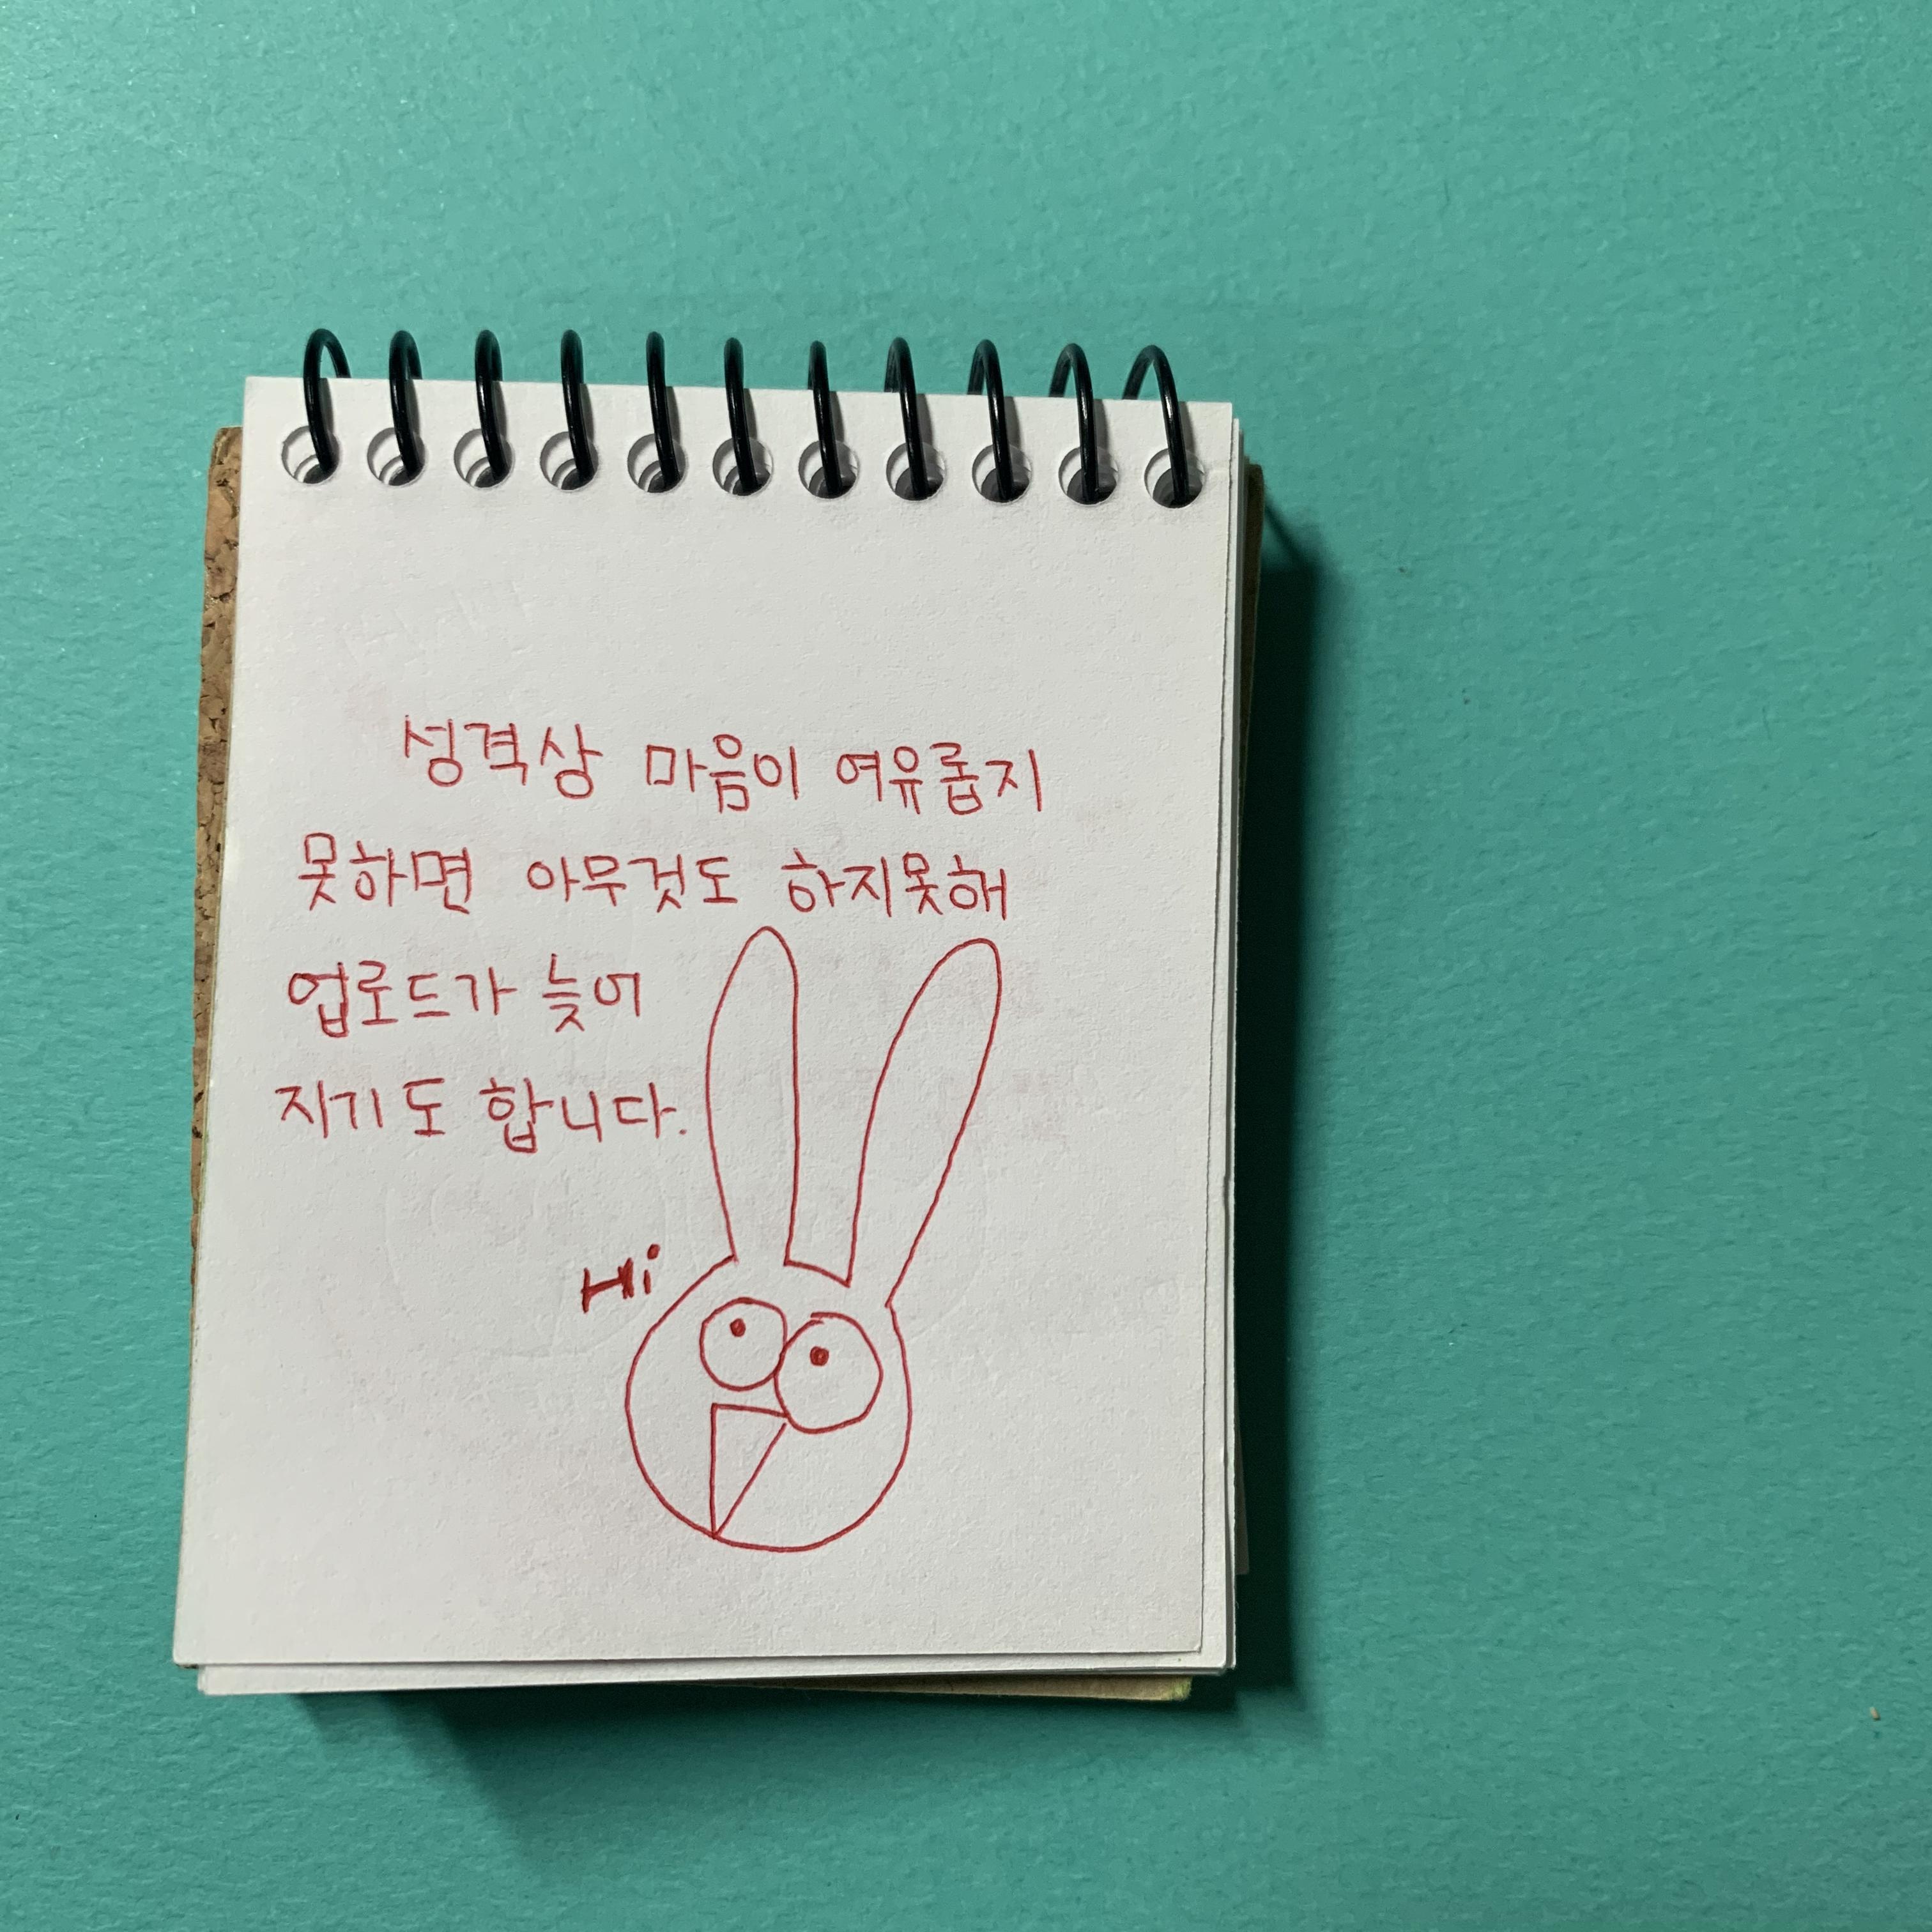 성격상 마음이 여유롭지
못하면 아무것도 하지못해
업로드가 늦어
지기도 합니다.
Hi